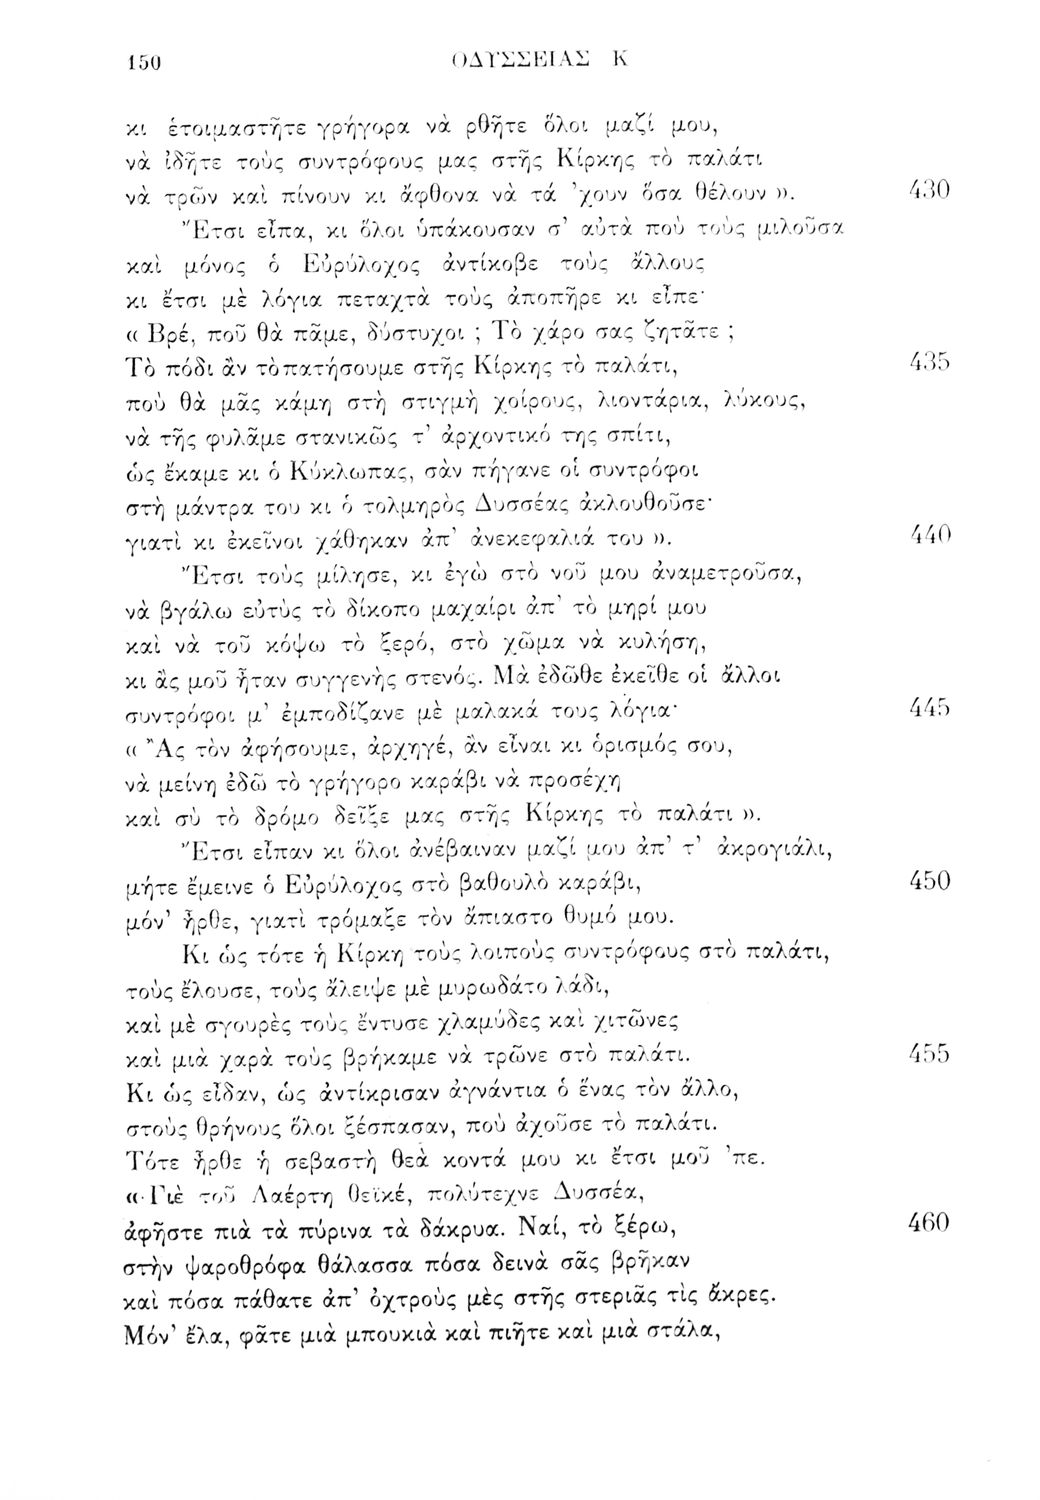 150 ΟΔΥΣΣΕΙΑΣ Κ
κι ἑτοιμαστῆτε γρήγορα νὰ ρθῆτε ὅλοι μαζί μου,
νὰ ἰδῆτε τοὺς συντρόφους μας στῆς Κίρκης τὸ παλάτι
νὰ τρῶν καὶ πίνουν κι ἄφθονα νὰ τά ᾽χουν ὅσα θέλουν ». 430
Ἔτσι εἶπα, κι ὅλοι ὑπάκουσαν σ᾽ αὐτὰ ποὺ τοὺς μιλοῦσα
καὶ μόνος ὁ Εὐρύλοχος ἀντίκοβε τοὺς ἄλλους
κι ἔτσι μὲ λόγια πεταχτὰ τοὺς ἀποπῆρε κι εἶπε·
« Βρέ, ποῦ θὰ πᾶμε, δύστυχοι ; Τὸ χάρο σας ζητᾶτε ;
Τὸ πόδι ἂν τὸπατήσουμε στῆς Κίρκης τὸ παλάτι, 435
ποὺ θὰ μᾶς κάμη στὴ στιγμὴ χοίρους, λιοντάρια, λύκους,
νὰ τῆς φυλᾶμε στανικῶς τ᾽ ἀρχοντικό της σπίτι,
ὡς ἔκαμε κι ὁ Κύκλωπας, σὰν πήγανε οἱ συντρόφοι
στὴ μάντρα του κι ὁ τολμηρὸς Δυσσέας ἀκλουθοῦσε·
γιατὶ κι ἐκεῖνοι χάθηκαν ἀπ᾽ ἀνεκεφαλιά του ». 440
Ἔτσι τοὺς μίλησε, κι ἐγὼ στὸ νοῦ μου ἀναμετροῦσα,
νὰ βγάλω εὐτὺς τὸ δίκοπο μαχαίρι ἀπ᾽ τὸ μηρί μου
καὶ νὰ τοῦ κόψω τὸ ξερό, στὸ χῶμα νὰ κυλήση,
κι ἂς μοῦ ἦταν συγγενὴς στενός. Μὰ ἐδῶθε ἐκεῖθε οἱ ἄλλοι
συντρόφοι μ᾽ ἐμποδίζανε μὲ μαλακά τους λόγια· 445
« Ἂς τὸν ἀφήσουμε, ἀρχηγέ, ἂν εἶναι κι ὁρισμός σου,
νὰ μείνη ἐδῶ τὸ γρήγορο καράβι νὰ προσέχη
καὶ σὺ τὸ δρόμο δεῖξε μας στῆς Κίρκης τὸ παλάτι ».
Ἔτσι εἶπαν κι ὅλοι ἀνέβαιναν μαζί μου ἀπ᾽ τ᾽ ἀκρογιάλι,
μήτε ἔμεινε ὁ Εὐρύλοχος στὸ βαθουλὸ καράβι, 450
μόν᾽ ἦρθε, γιατὶ τρόμαξε τὸν ἄπιαστο θυμό μου.
Κι ὡς τότε ἡ Κίρκη τοὺς λοιποὺς συντρόφους στὸ παλάτι,
τοὺς ἔλουσε, τοὺς ἄλειψε μὲ μυρωδάτο λάδι,
καὶ μὲ σγουρὲς τοὺς ἔντυσε χλαμύδες καὶ χιτῶνες
καὶ μιὰ χαρὰ τοὺς βρήκαμε νὰ τρῶνε στὸ παλάτι. 455
Κι ὡς εἶδαν, ὡς ἀντίκρισαν ἀγνάντια ὁ ἕνας τὸν ἄλλο,
στοὺς θρήνους ὅλοι ξέσπασαν, ποὺ ἀχοῦσε τὸ παλάτι.
Τότε ἦρθε ἡ σεβαστὴ θεὰ κοντά μου κι ἔτσι μοῦ ᾽πε.
« Γιὲ τοῦ Λαέρτη θεϊκέ, πολύτεχνε Δυσσέα,
ἀφῆστε πιὰ τὰ πύρινα τὰ δάκρυα. Ναί, τὸ ξέρω, 460
στὴν ψαροθρόφα θάλασσα πόσα δεινὰ σᾶς βρῆκαν
καὶ πόσα πάθατε ἀπ᾽ ὀχτροὺς μὲς στῆς στεριᾶς τὶς ἄκρες.
Μόν᾽ ἔλα, φᾶτε μιὰ μπουκιὰ καὶ πιῆτε καὶ μιὰ στάλα,